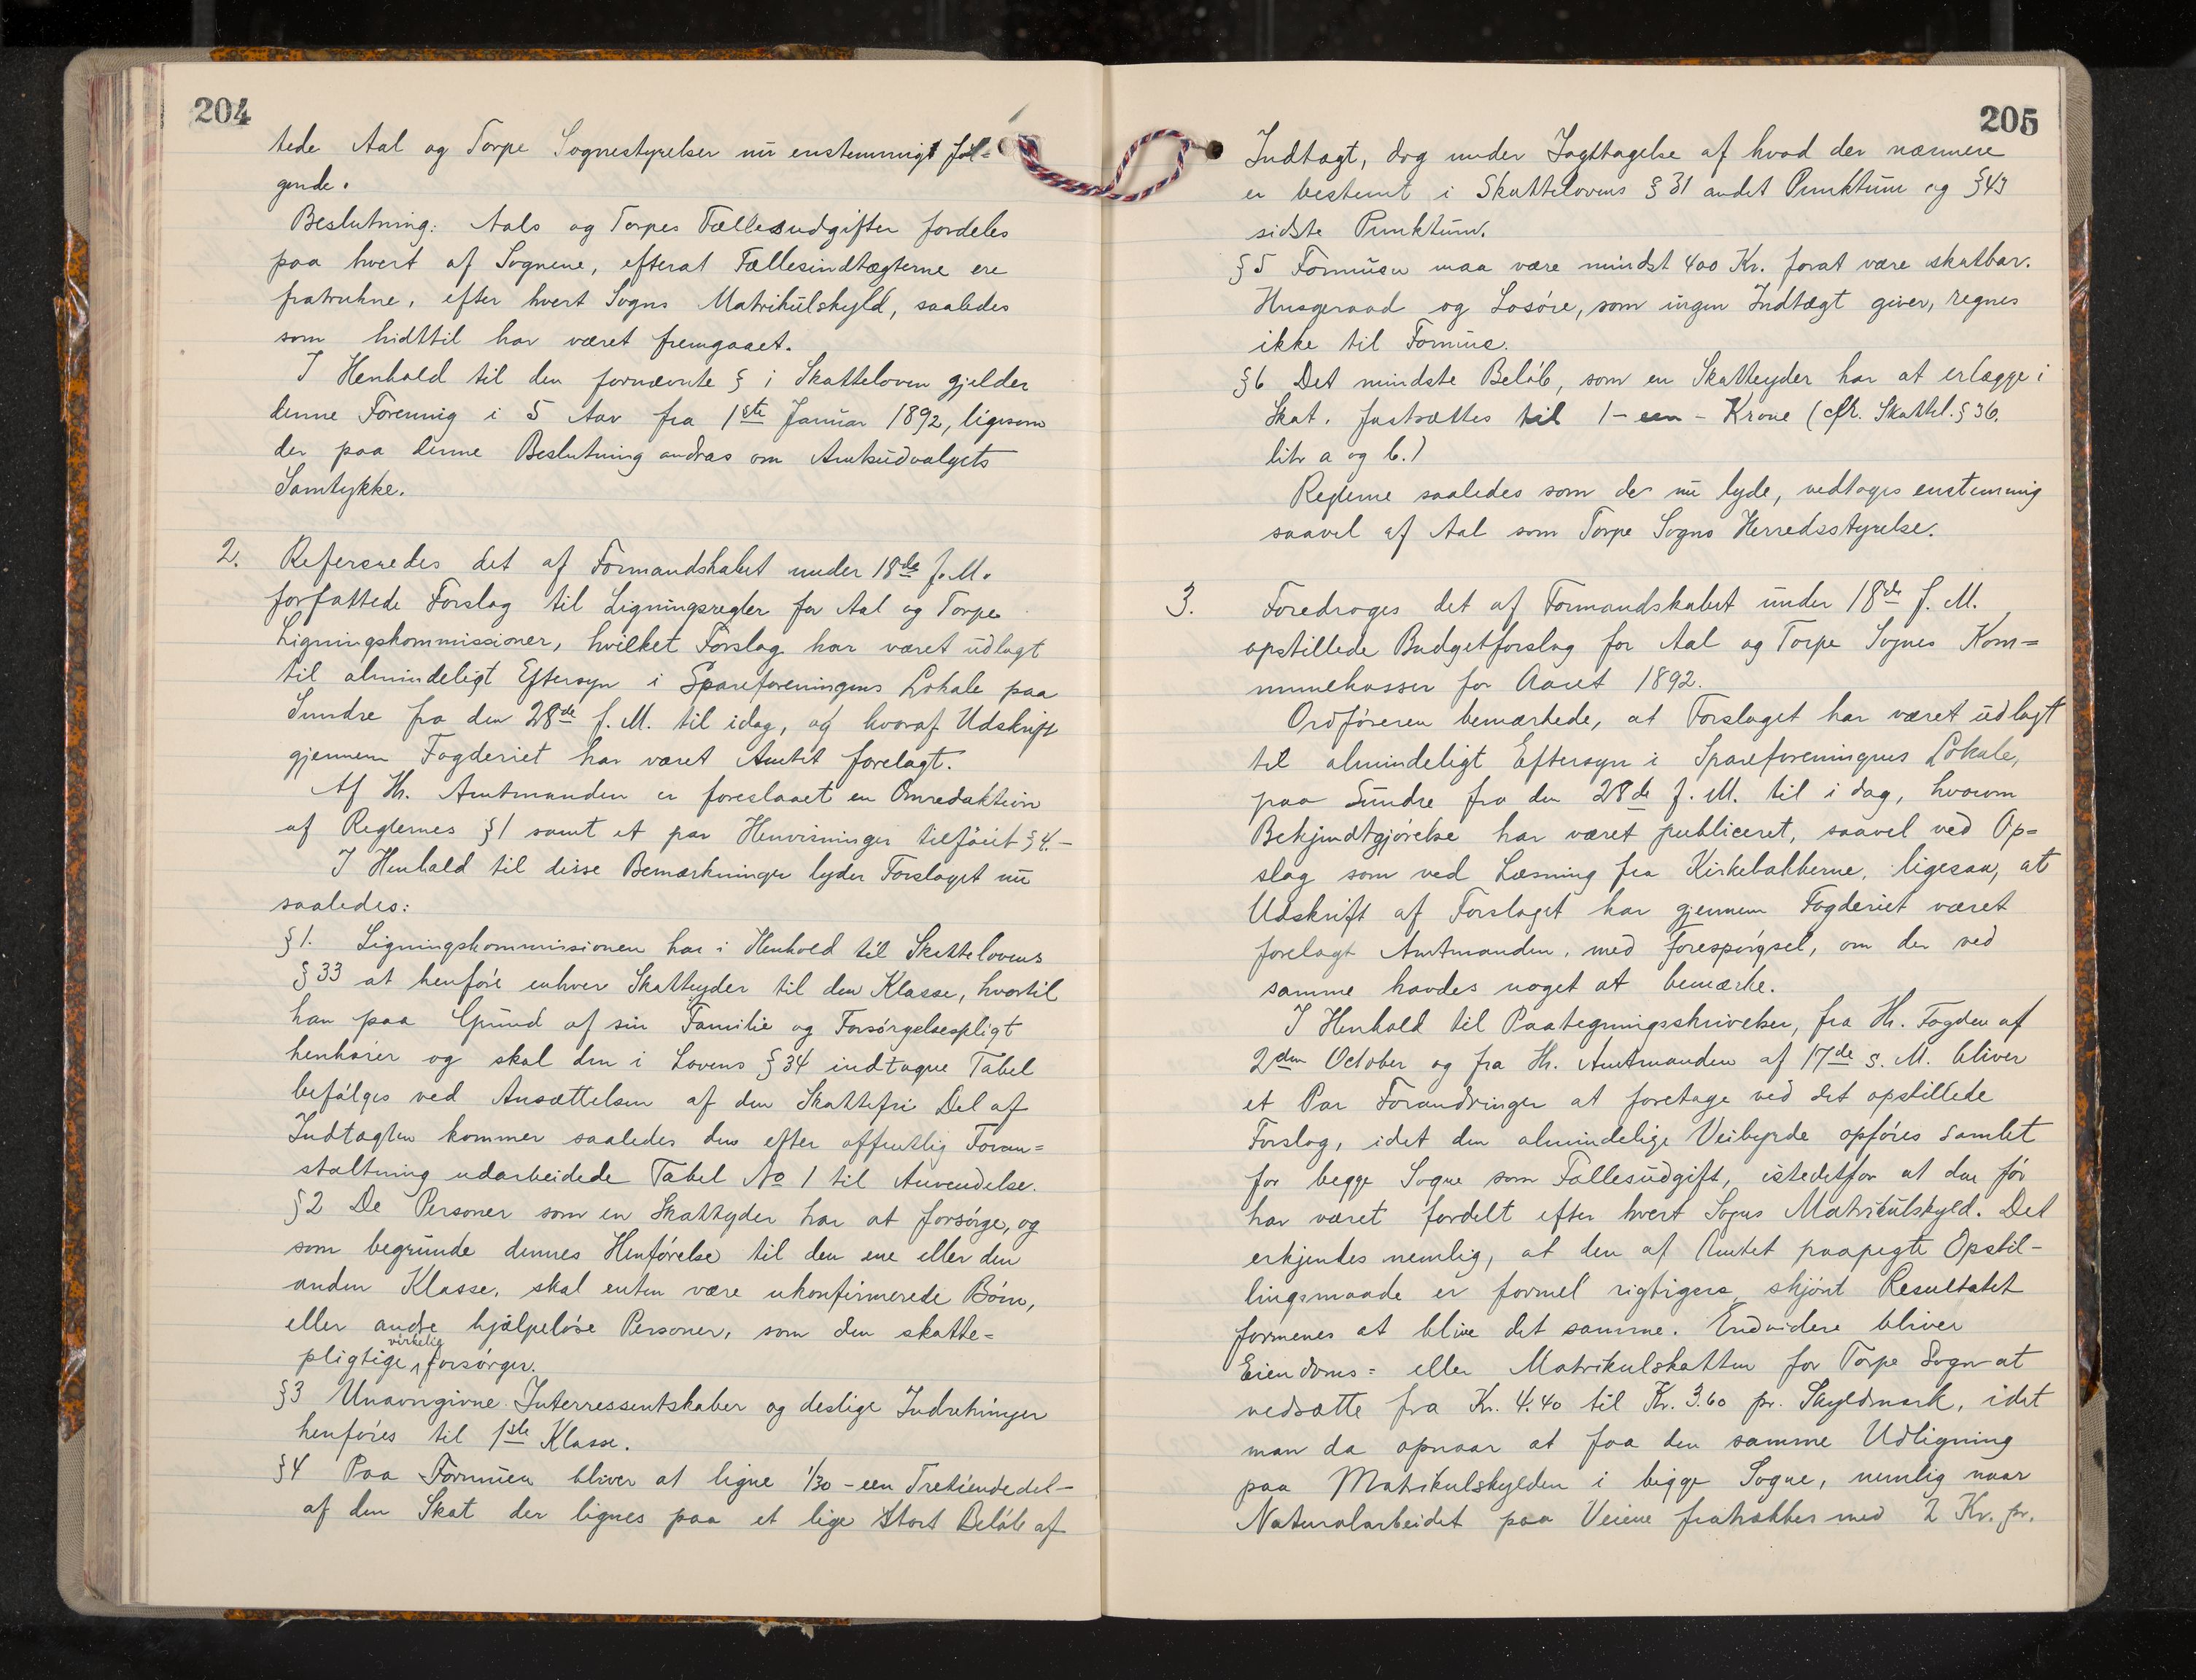 204
tede Aal og Torpe Sognestyrelser nu enstemmigt føl=
gende.
Beslutning: Aals og Torpes Fællesudgifter fordeles
paa hvert af Sognene, efterat Fællesindtægterne ere
fratrukne, efter hvert Sogns Matrikulskyld, saaledes
som hidtil har været fremgaaet.
I Henhold til den fornævnte § i Skatteloven gjelder
denne Forening i 5 Aar fra 1ste Januar 1892, ligesom
der paa denne Beslutning andras om Amtsudvalgets
Samtykke.
2. Refereredes det af Formandskabet under 18de f. M.
forfattede Forslag til Ligningsregler for Aal og Torpe
Ligningskommissioner, hvilket Forslag har været udlagt
til almindeligt Eftersyn i Spareforeningens Lokale paa
Sundre fra den 28de f. M. til idag, og hvoraf Udskrift
gjennem Fogderiet har været Amtet forelagt.
Af Hr. Amtmanden er foreslaaet en Omredaktion
af Reglernes §1 samt et par Henvisninger tilføiet §4.-
I Henhold til disse Bemærkninger lyder Forslaget nu
saaledes:
§1. Ligningskommissionen har i Henhold til Skattelovens
§33 at henføre enhver Skatteyder til den Klasse, hvortil
han paa Grund af sin Familie og Forsørgelsespligt
henhører og skal den i Lovens §34 indtagne Tabel
befølges ved Ansættelsen af den Skattefri Del af
Indtægten kommer saaledes den efter offentlig Foran=
staltning udarbeidede Tabel No 1 til Anvendelse.
§2 De Personer som en Skatteyder har at forsørge, og
som begrunde dennes Henførelse til den ene eller den
anden Klasse, skal enten være ukonfirmerede Børn,
eller andre hjælpeløse Personer, som den skatte=
pligtige virkelig forsørger.
§3 Unavngivne Interressentskaber og deslige Indretninger
henføres til 1ste Klasse.
§4 Paa Formuen bliver at ligne 1/30 - een Tretiendedel -
af den Skat der lignes paa et lige stort Beløb af
205
Indtægt, dog under Iagttagelse af hvad der nærmere
er bestemt i Skattelovens §31 andet Punktum og §43
sidste Punktum.
§5 Formuen maa være mindst 400 Kr. forat være skatbar.
Husgeraad og Løsøre, som ingen Indtægt giver, regnes
ikke til Formue.
§6 Det mindste Beløb, som en Skatteyder har at erlægge i
Skat, fastsættes til 1 - een - Krone (cfr. Skattel. §36.
litr a og b.)
Reglerne saaledes som de nu lyde, vedtoges enstemmig
saavel af Aal som Torpe Sogns Herredsstyrelse.
3. Foredroges det af Formandskabet under 18de f. M.
opstillede Budgetforslag for Aal og Torpe Sognes Kom=
munekasser for Aaret 1892.
Ordføreren bemærkede, at Forslaget har været udlagt
til almindeligt Eftersyn i Spareforeningens Lokale,
paa Sundre fra den 28de f. M. til i dag, hvorom
Bekjendtgjørelse har været publiceret, saavel ved Op=
slag som ved Læsning fra Kirkebakkerne, ligesaa, at
Udskrift af Forslaget har gjennem Fogderiet været
forelagt Amtmanden, med Forespørgsel, om der ved
samme havdes noget at bemærke.
I Henhold til Paategningsskrivelser, fra Hr. Fogden af
2den October og fra Hr. Amtmanden af 17de s. M. bliver
et Par Forandringer at foretage ved det opstillede
Forslag, idet den almindelige Veibyrde opføres samlet
for begge Sogne som Fællesudgift, istedetfor at den før
har været fordelt efter hvert Sogns Matrikulskyld. Det
erkjendes nemlig, at den af Amtet paapegte Opstil-
lingsmaade er formel rigtigere, skjønt Resultatet
formenes at blive det samme. Endvidere bliver
Eiendoms= eller Matrikulskatten for Torpe Sogn at
nedsætte fra Kr. 4.40 til Kr. 3.60 pr. Skyldmark, idet
man da opnaar at faa den samme Udligning
paa Matrikulskylden i begge Sogne, nemlig naar
Naturalarbeidet paa Veiene fratrækkes med 2 Kr. pr.